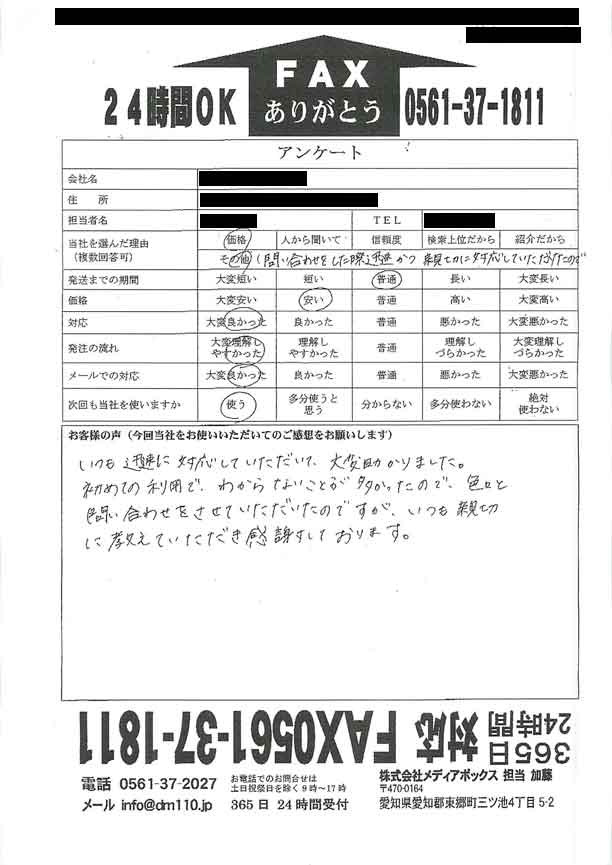 FAX
ありがとう
24時間OK
0561-37-1811
アンケート
会社名
住 所
担当者名 TEL
当社を選んだ理由(複数回答可) 価格 人から聞いて 信頼度 検索上位だから 紹介だから
その他(問い合わせをした際迅速かつ親切に対応していただけたので
発送までの期間 大変短い 短い 普通 長い 大変長い
価格 大変安い 安い 普通 高い 大変高い
対応 大変良かった 良かった 普通 悪かった 大変悪かった
発注の流れ 大変理解しやすかった 理解しやすかった 普通 理解しづらかった 大変理解しづらかった
メールでの対応 大変良かった 良かった 普通 悪かった 大変悪かった
次回も当社を使いますか 使う 多分使うと思う 分からない 多分使わない 絶対使わない
お客様の声(今回当社をお使いいただいてのご感想をお願いします)
いつも迅速に対応していただいて、大変助かりました。
初めての利用で、わからないことが多かったので、色々と
問い合わせをさせていただいたのですが、いつも親切
に教えていただき感謝しております。
365日24時間対応 FAX0561-37-1811
電話 0561-37-2027
お電話でのお問合せは
土日祝祭日を除く9時～17時
メール info@dm110.jp
365日 24時間受付
株式会社メディアボックス 担当 加藤
〒470-0164
愛知県愛知郡東郷町三ツ池4丁目5-2